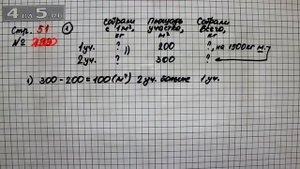 4 A 5 EN
Стр. 51 ①
№ 299
Собрали с 1 м², кг
Площадь участка, м²
Собрали всего, кг
1 уч. ? 200 ?, на 1500 кг м.
2 уч. ? 300 ?
1) 300 - 200 = 100 (м²) 2 уч. больше 1 уч.